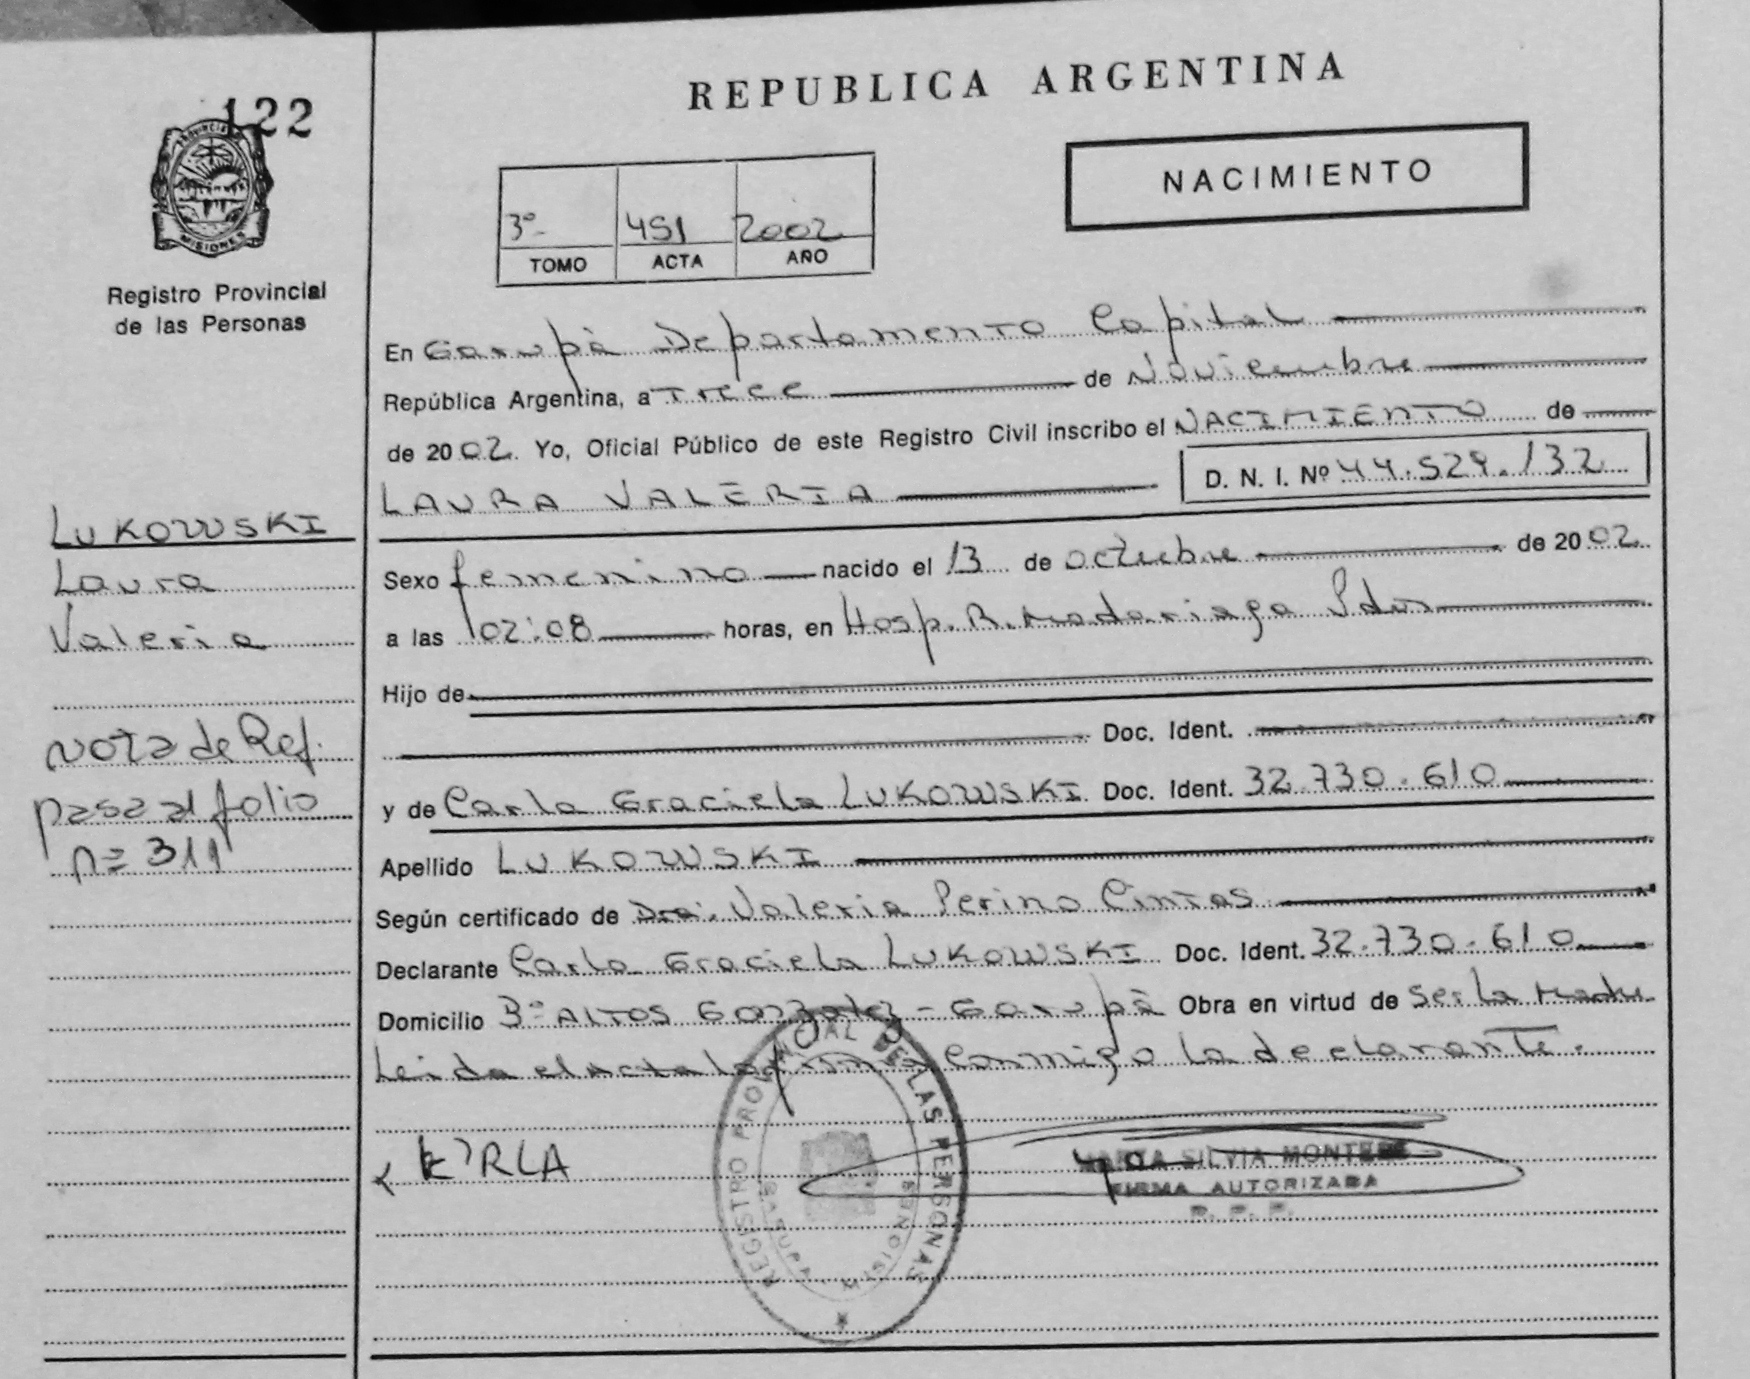 122
PROVINCIA DE
MISIONES
Registro Provincial
de las Personas
LUKOWSKI
Laura
Valeria
nota de Ref.
pasa al folio
nº 311
REPUBLICA ARGENTINA
NACIMIENTO
3º 451 2002
TOMO ACTA AÑO
En Garupà Departamento Capital
República Argentina, a Trece de Noviembre
de 2002. Yo, Oficial Público de este Registro Civil inscribo el NACIMIENTO de
LAURA VALERIA D. N. I. Nº 44.529.132
Sexo femenino nacido el 13 de octubre de 2002
a las 02:08 horas, en Hosp. R. Madariaga Pdas
Hijo de
Doc. Ident.
y de Carla Graciela LUKOWSKI Doc. Ident. 32.730.610
Apellido LUKOWSKI
Según certificado de Dra. Valeria Perino Cintas
Declarante Carla Graciela LUKOWSKI Doc. Ident. 32.730.610
Domicilio Bº ALTOS Gonzalez - Garupà Obra en virtud de Ser la Madre
Leida el acta la firma Conmigo la declarante.
REGISTRO PROVINCIAL DE LAS PERSONAS
GARUPA MISIONES
SILVIA
FIRMA AUTORIZADA
R. P. P.